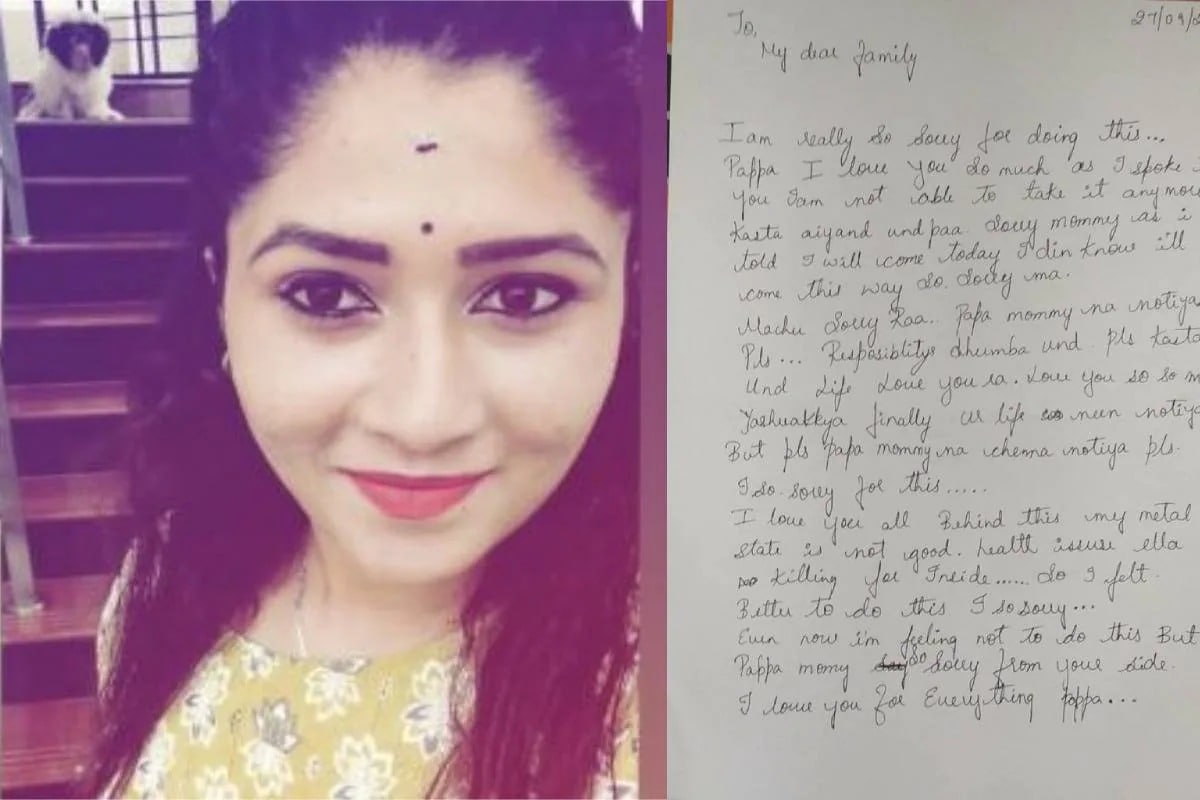 To,
27/09/2
My dear family
I am really so sorry for doing this...
Pappa I love you so much as I spoke
you Iam not able to take it anymor
Kasta aiyand und paa. Sorry mommy as i
told I will come today I din know ill
come this way so. Sorry ma.
Machu Sorry Raa.. Papa mommy na notiya
Pls... Resposiblitys dhumba und pls Kasta
Und Life Love you ra. Love you so so m
Yashuakkya finally ur life neen notiya
But pls papa mommy na chenna notiya pls.
I so. sorry for this.....
I love you all Behind this my metal
state is not good. health issuse ella
killing for Inside...... So I felt.
Better to do this I so sorry...
Even now i'm feeling not to do this But
Pappa momy so Sorry from your side.
I love you for Everything pappa...